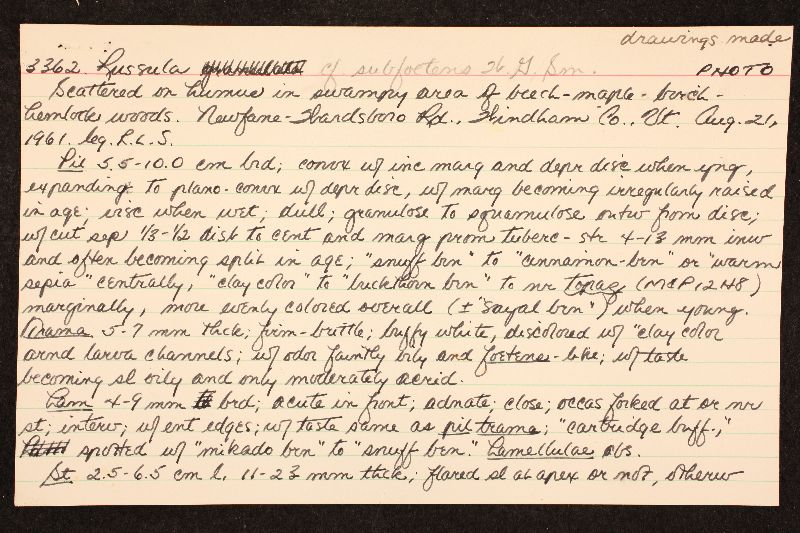 drawings made
3362 Russula cf. subfoetens W. G. Sm. PHOTO
Scattered on humus in swampy area of beech-maple-birch-
hemlock woods. Newfane-Wardsboro Rd., Windham Co., Vt. Aug. 21,
1961. leg. R.L.S.
Pil 5.5-10.0 cm brd; convx w/ inc marg and depr disc when yng,
expanding to plano-convx w/ depr disc, w/ marg becoming irregularly raised
in age; visc when wet; dull; granulose to squamulose outw from disc;
w/ cut sep 1/3-1/2 dist to cent and marg prom tuberc-str 4-13 mm inw
and often becoming split in age; "snuff brn" to "cinnamon-brn" or "warm
sepia" centrally, "clay color" to "buckthorn brn" to nr topaz (M&P 12H8)
marginally, more evenly colored overall (± "sayal brn") when young.
Trama 5-7 mm thck; firm-brittle; buffy white, discolored w/ "clay color
arnd larva channels; w/ odor faintly oily and foetens-like; w/ taste
becoming sl oily and only moderately acrid.
Lam 4-9 mm brd; acute in front; adnate; close; occas forked at or nr
st; interv; w/ ent edges; w/ taste same as pil trama; "cartridge buff,"
spotted w/ "mikado brn" to "snuff brn." Lamellulae abs.
St 2.5-6.5 cm l, 11-23 mm thck; flared sl at apex or not, otherw